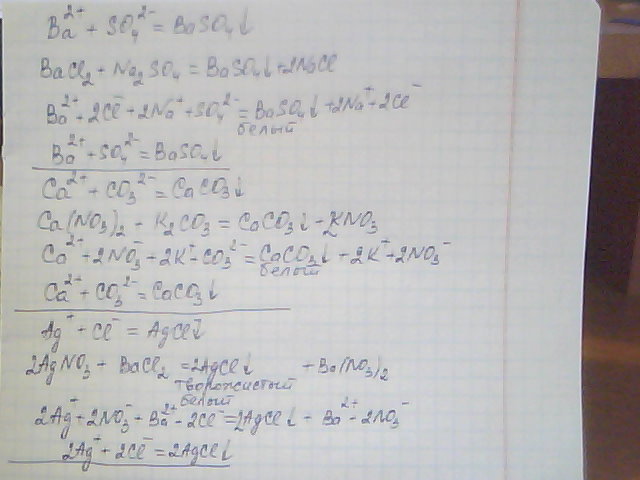 Ba²⁺ + SO₄²⁻ = BaSO₄↓
BaCl₂ + Na₂SO₄ = BaSO₄↓ + 2NaCl
Ba²⁺ + 2Cl⁻ + 2Na⁺ + SO₄²⁻ = BaSO₄↓ + 2Na⁺ + 2Cl⁻
белый
Ba²⁺ + SO₄²⁻ = BaSO₄↓
Ca²⁺ + CO₃²⁻ = CaCO₃↓
Ca(NO₃)₂ + K₂CO₃ = CaCO₃↓ + 2KNO₃
Ca²⁺ + 2NO₃⁻ + 2K⁺ + CO₃²⁻ = CaCO₃↓ + 2K⁺ + 2NO₃⁻
белый
Ca²⁺ + CO₃²⁻ = CaCO₃↓
Ag⁺ + Cl⁻ = AgCl↓
2AgNO₃ + BaCl₂ = 2AgCl↓ + Ba(NO₃)₂
творожистый
белый
2Ag⁺ + 2NO₃⁻ + Ba²⁺ + 2Cl⁻ = 2AgCl↓ + Ba²⁺ + 2NO₃⁻
2Ag⁺ + 2Cl⁻ = 2AgCl↓